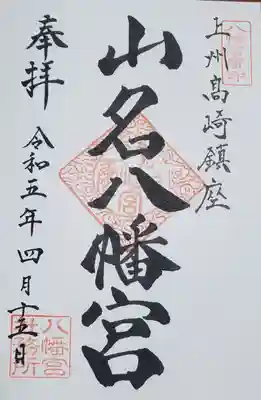 上州高崎鎮座
山名八幡宮
奉拝
令和五年四月十五日
八幡宮社務所